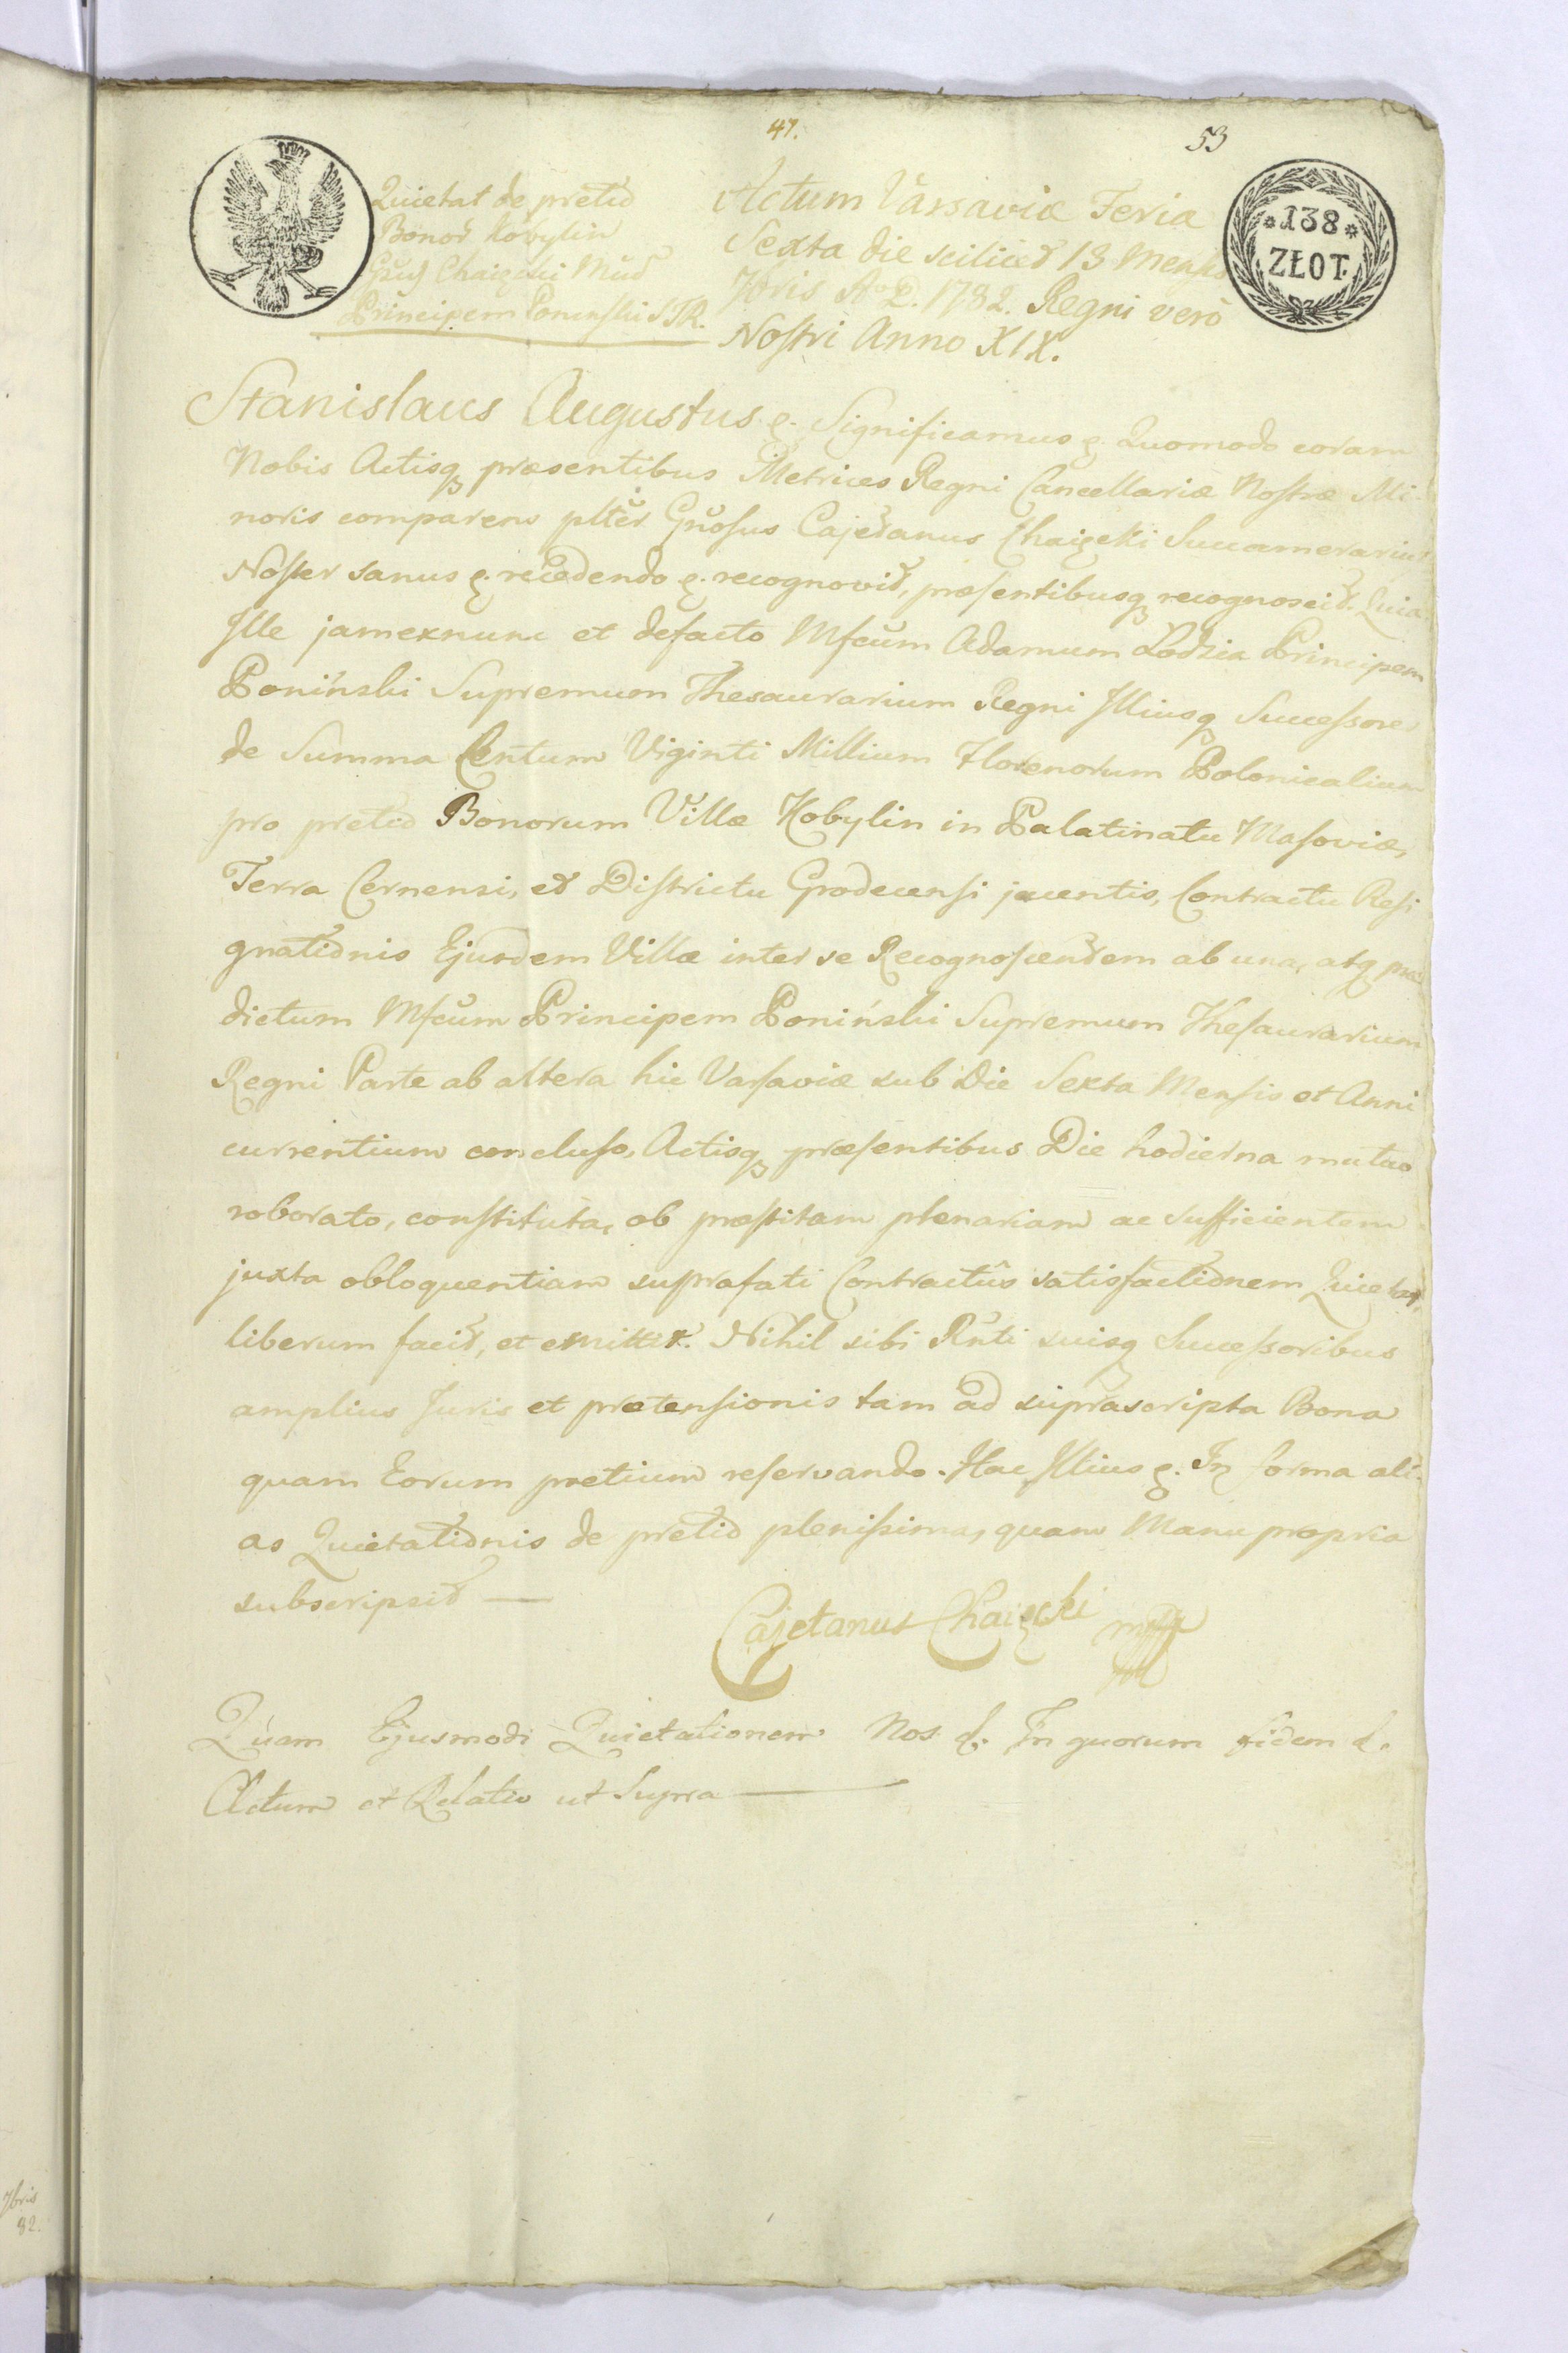 47.
53
Quietat de pretio
Bonor Kobylin
Gnus Chaięcki Mcūd
Principem Poninski STR.
Actum Varsaviæ Feria
Sexta die scilicet 13 Mensis
7bris A° D. 1782. Regni verò
Nostri Anno XIX.
138
ZŁOT.
Stanislaus Augustus &. Significamus &. Quomodo coram
Nobis Actisq præsentibus Metrices Regni Cancellariæ Nostræ Mi-
noris comparens plter Gnosus Cajetanus Chaięcki Succamerarius
Noster sanus &. recedendo &. recognovit, præsentibusq recognoscit. Quia
Ille jamexnunc et defacto Mfcum Adamum Lodzia Principem
Poniński Supremum Thesaurarium Regni Illiusq Successores
de Summa Centum Viginti Millium Florenorum Polonicalium
pro pretio Bonorum Villæ Kobylin in Palatinatu Masoviæ,
Terra Cernensi, et Districtu Grodecensi jacentis, Contractu Resi
gnationis Ejusdem Villæ inter se Recognoscentem ab una, atq præ
dictum Mfcum Principem Poniński Supremum Thesaurarium
Regni Parte ab altera hic Varsaviæ sub Die Sexta Mensis et Anni
currentium concluso, Actisq præsentibus Die hodierna mutuo
roborato, constituta, ob præstitam plenariam ac sufficientem
juxta obloquentiam suprafati Contractûs satisfactionem Quietat,
liberum facit, et emittit. Nihil sibi Rnti suisq Successoribus
amplius Juris et prætensionis tam ad suprascripta Bona
quam Eorum pretium reservando. Hac Illius &. In forma ali-
as Quietationis de pretio plenissima, quam Manu propria
subscripsit —
Cajetanus Chaięcki mpp
Quam Ejusmodi Quietationem Nos &. In quorum fidem &.
Actum et Relatio ut Supra —
7bris
82.